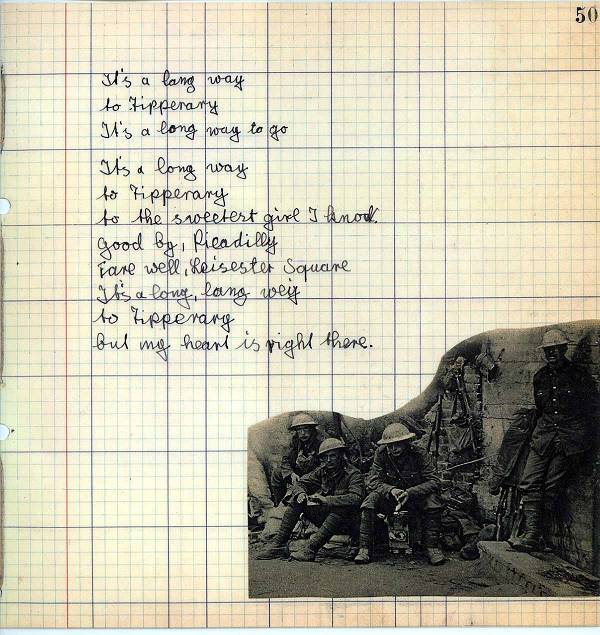 50
It's a lang way
to Tipperary
It's a long way to go
It's a long way
to Tipperary
to the sweetest girl I know.
Good by, Picadilly
Fare well, Leisester Square
It's a long, lang wey
to Tipperary
but my heart is right there.